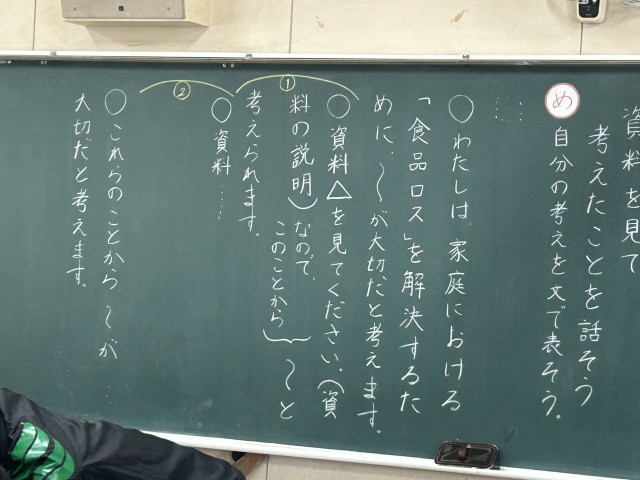 資料を見て
考えたことを話そう
め 自分の考えを文で表そう。
〇わたしは、家庭における
「食品ロス」を解決するた
めに、〜が大切だと考えます。
①
〇資料△を見てください。(資
料の説明)なので、このことから〜と
考えられます。
②
〇資料……
〇これらのことから、〜が……
大切だと考えます。